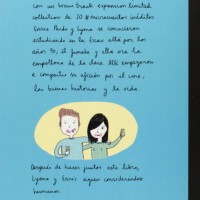 con un bonus track expansion limited
collection de 20 #microcuentos inéditos
Enric Pardo y Lyona se conocieron
estudiando en la Escac allá por los
años 90, él fumaba y ella era la
empollona de la clase. Allí empezaron
a compartir su afición por el cine,
las buenas historias y la vida.
Después de hacer juntos este libro,
Lyona y Enric siguen considerándose
humanos.